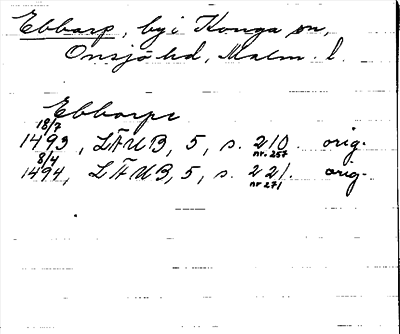 Ebbarp, by i Konga sn,
Onsjö hd, Malm. l.
Ebborpe
18/7
1493, LÄUB, 5, s. 210. orig.
nr. 257
8/4
1494, LÄUB, 5, s. 221. orig.
nr. 271